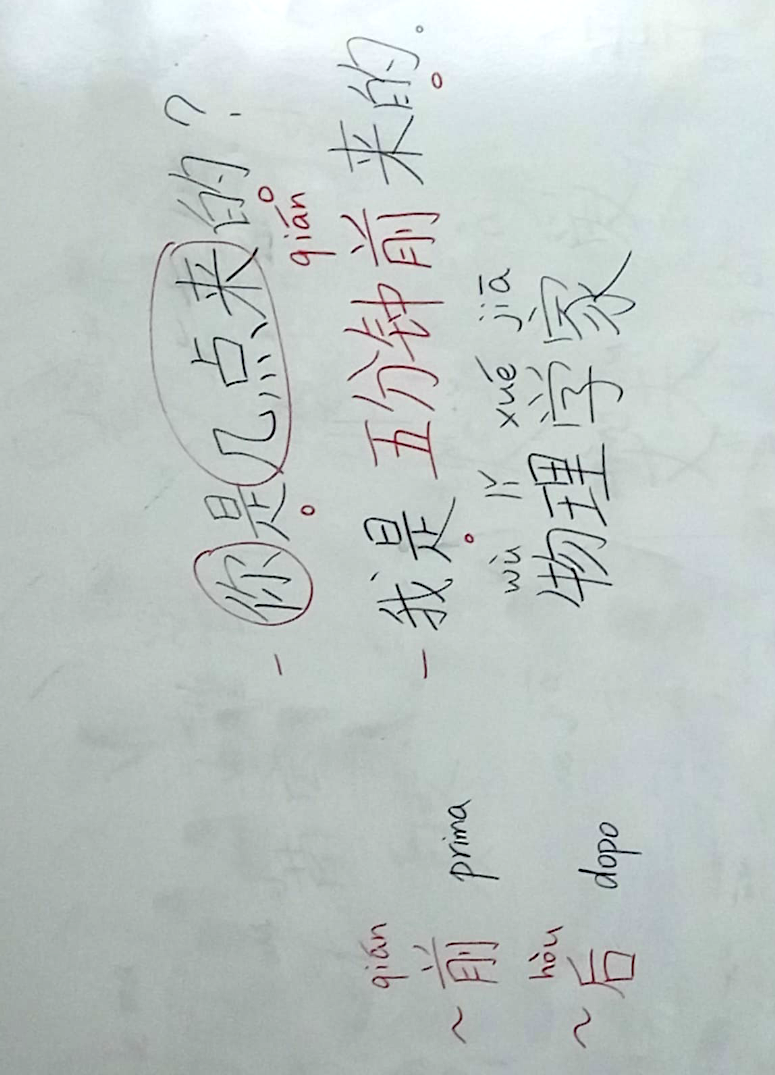 - 你是几点来的?
qián
- 我是五分钟前来的。
wù lǐ xué jiā
物理学家
qián
~前 prima
hòu
~后 dopo